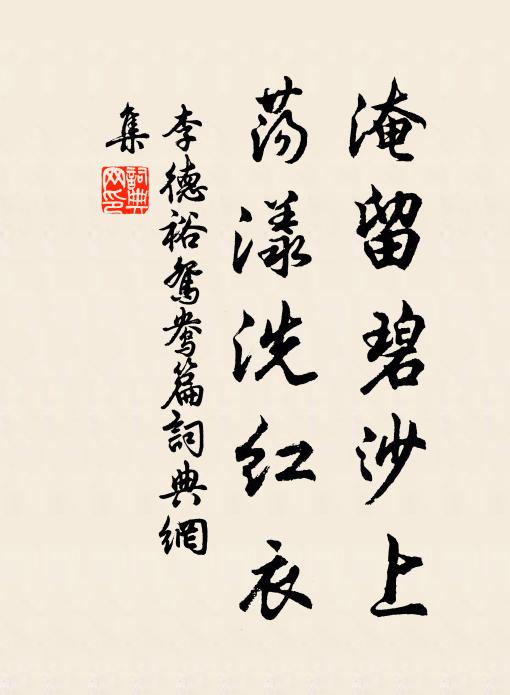 淹留碧沙上
蕩漾洗紅衣
李德裕鴛鴦篇詞典網
集
詞典网印